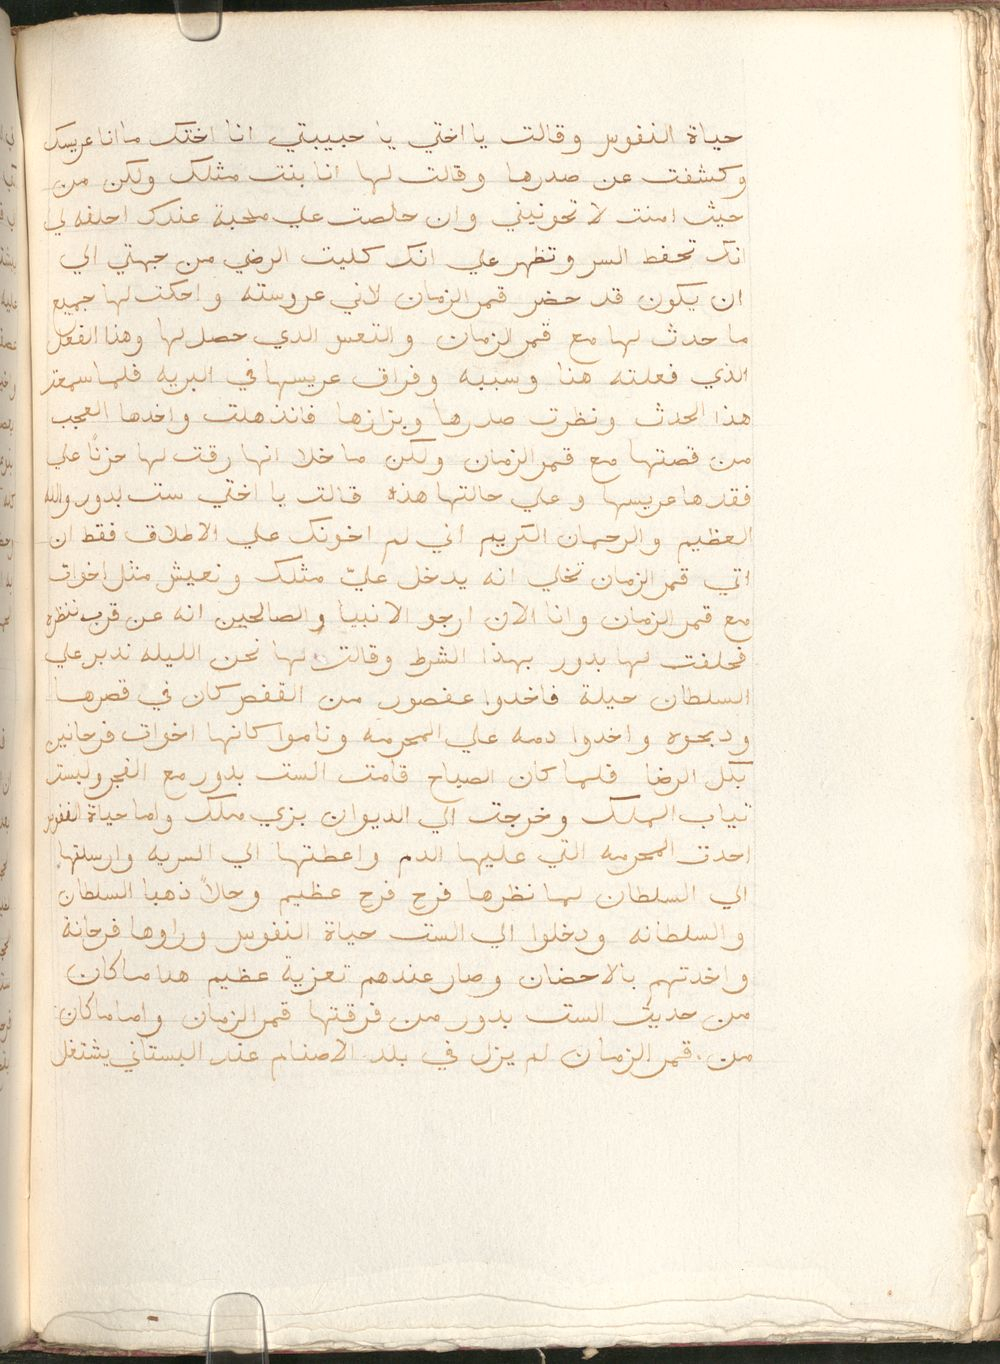 حياة النفوس وقالت يا اختي يا حبيبتي انا اختك ما انا عريسك
وكشفت عن صدرها وقالت لها انا بنت مثلك ولكن من
حيث امنت لا تخونيني وان خلصت علي محبة عندك احلفه لي
انك تحفط السر وتظهر علي انك كليت الرضي من جهتي الي
ان يكون قد حضر قمر الزمان لاني عروسته واحكت لها جميع
ما حدث لها مع قمر الزمان والتعس الدي حصل لها وهذا الفعل
الذي فعلته هنا وسببه وفراق عريسها في البريه فلما سمعت
هذا الحدث ونظرت صدرها وبزازها فانذهلت واخدها العجب
من قصتها مع قمر الزمان ولكن ما خلا انها رقت لها حزنًا علي
فقدها عريسها وعلي حالتها هذه قالت يا اختي ست بدور والله
العظيم والرحمان الكريم اني لم اخونك علي الاطلاق فقط ان
اتي قمر الزمان تخلي انه يدخل عليّ مثلك ونعيش مثل اخوات
مع قمر الزمان وانا الان ارجو الانبيا والصالحين انه عن قرب ننظره
فحلفت لها بدور بهذا الشرط وقالت لها نحن الليله ندبر علي
السلطان حيلة فاخدوا عفصور من القفص كان في قصرها
ودبحوه واخدوا دمه علي المحرمه وناموا كانها اخوات فرحانين
بكل الرضا فلما كان الصباح قامت الست بدور مع الفجر ولبست
تياب الملك وخرجت الي الديوان بزي ملك واما حياة النفوس
احدت المحرمه التي عليها الدم واعطتها الي السريه وارسلتها
الي السلطان لما نظرها فرح فرح عظيم وحالاً ذهبا السلطان
والسلطانه ودخلوا الي الست حياة النفوس وراوها فرحانة
واخدتهم بالاحضان وصار عندهم تعزية عظيم هدا ما كان
من حديث الست بدور من فرقتها قمر الزمان واما ما كان
من قمر الزمان لم يزل في بلد الاصنام عند البستاني يشتغل